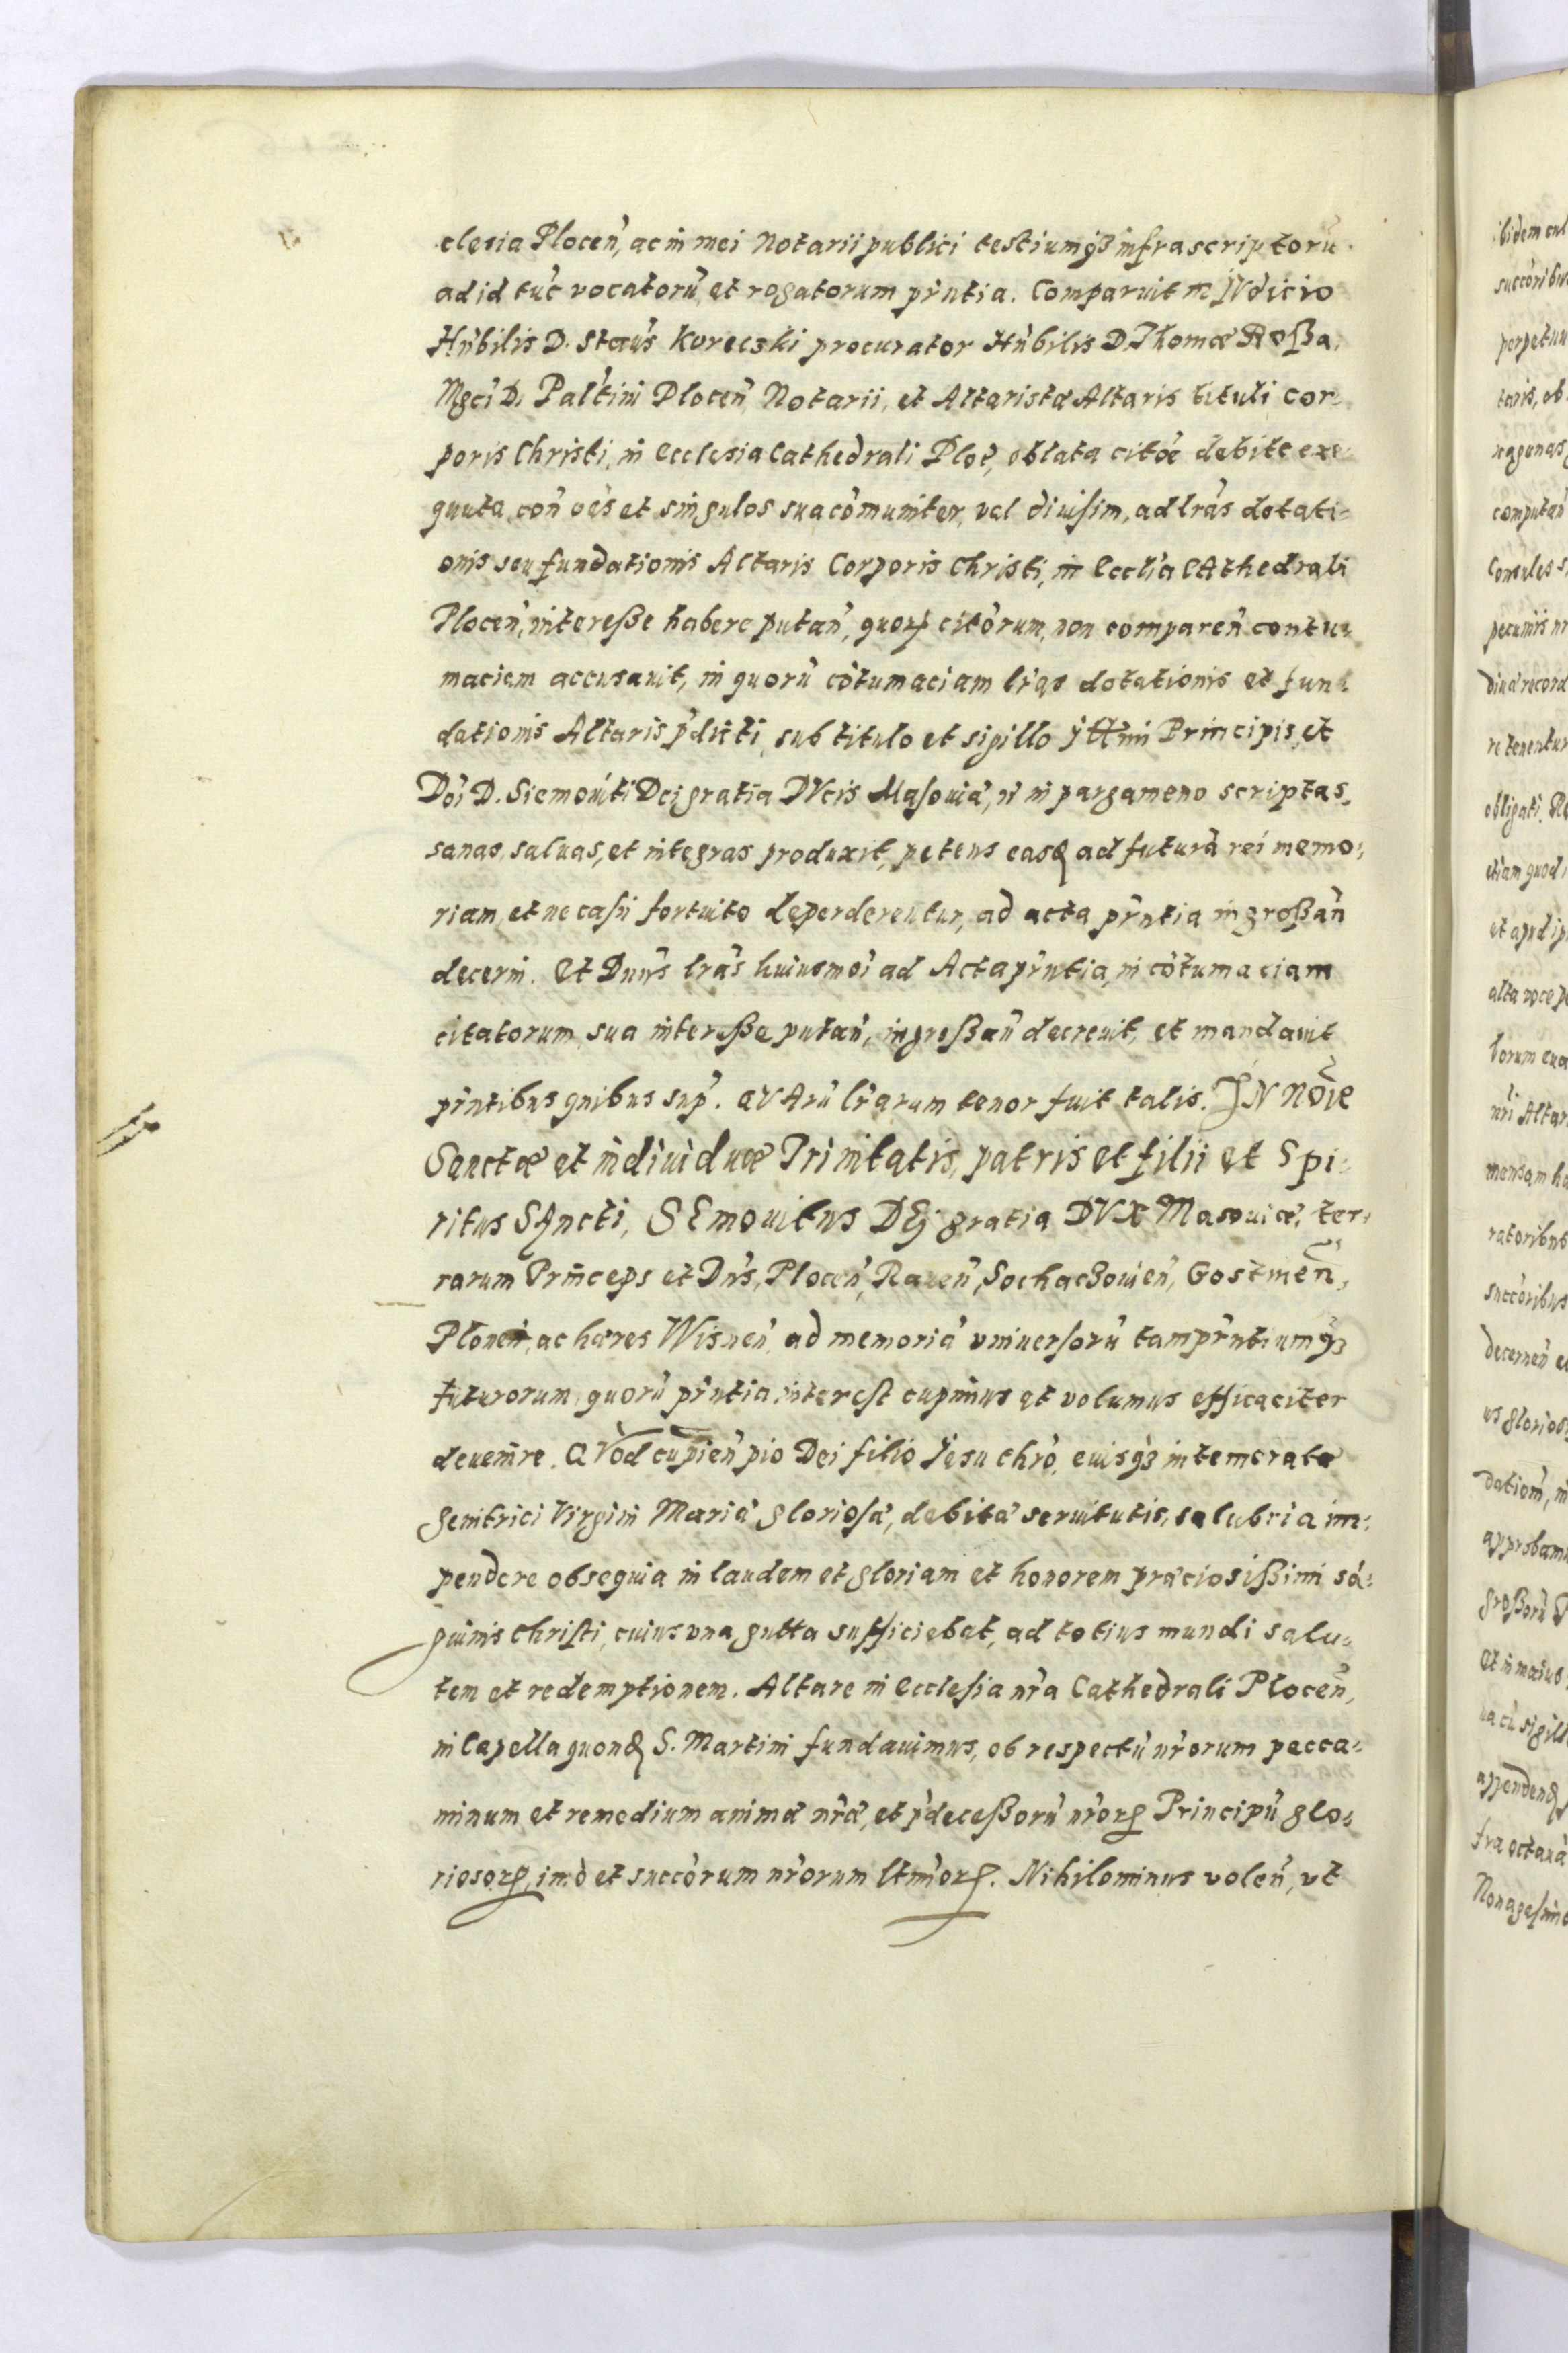 clesia Plocen̄, ac in mei Notarii publici testiumqȝ infrascriptorū
ad id tūc vocatorū et rogatorum pn̄tia. Comparuit in JVdicio
Hn̄bilis D. Staūs Koreczki procurator Hn̄bilis D. Thomæ Roßa,
Mgci D. Palt̄ini Plocen̄ Notarii, et Altaristæ Altaris tituli Cor-
poris Christi, in Ecclesia Cathedrali Ploc̄, oblata citōe debite exe-
quuta, con̄ oēs et singulos sua cōmuniter, vel diuisim, ad lrās dotati=
onis seu fundationis Altaris Corporis Christi, in Eccliā CAthedrali
Plocen̄, intereße habere putan̄, quorꝝ citōrum, non comparen̄ contu=
maciam accusauit, in quorū cōtumaciam lrās dotationis et fun=
dationis Altaris p̄dicti, sub titulo et sigillo Jllmi Principis, et
Dōi D. Siemouiti Dei gratia DVcis Masouiæ, in pargameno scriptas,
sanas, saluas, et integras produxit, petens easq̃ ad futurā rei memo=
riam, et ne casu fortuito deperderentur, ad acta pn̄tia ingroßan̄
decerni. Et Dnūs lrās huiusmōi ad Acta pn̄tia, in cōtumaciam
citatorum sua intereße putan̄, ingroßan̄ decreuit, et mandauit
pn̄tibus quibus sup̄. QVArū lrārum tenor fuit talis. JN Nōie
Sanctæ et indiuiduæ Trinitatis, patris et filii et Spi=
ritus SAncti, SEmouitus DEj gratia DVX Masouiæ, ter=
rarum Princeps et Dnūs, Plocen̄, Rauen̄, Sochaczouien̄, Gostinen̄,
Plonen̄, ac hæres Wisnen̄, ad memoriā vniuersorū tam pn̄tiumqȝ
futurorum, quorū pn̄tia interest cupimus et volumus efficaciter
deuenire. QVod cupien̄ pio Dei filio Jesu chrō, euisqȝ intemeratæ
genitrici Virgini Mariæ gloriosæ, debitæ seruitutis, salubria im=
pendere obsequia in laudem et gloriam et honorem præciosißimi sā=
guinis Christi, cuius vna gutta sufficiebat, ad totius mundi salu=
tem et redemptionem. Altare in Ecclesia nrā Cathedrali Plocen̄,
in Capella quondꝭ S. Martini fundauimus, ob respectū nrōrum pecca=
minum et remedium animæ nræ, et p̄deceßorū nrōrꝝ Principū glo=
riosorꝝ, imo et succōrum nrōrum ltmōrꝝ. Nihilominus volen̄, vt